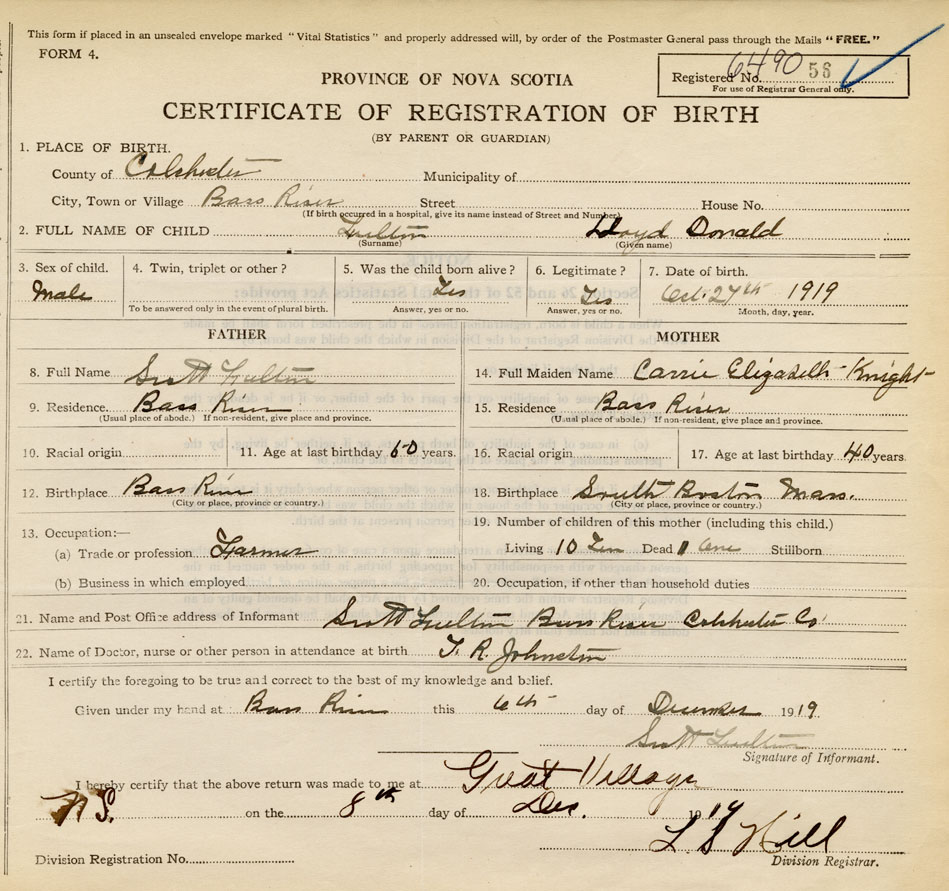 This form if placed in an unsealed envelope marked "Vital Statistics" and properly addressed will, by order of the Postmaster General pass through the Mails "FREE."
FORM 4.
Registered No. 6490 56
For use of Registrar General only.
PROVINCE OF NOVA SCOTIA
CERTIFICATE OF REGISTRATION OF BIRTH
(BY PARENT OR GUARDIAN)
1. PLACE OF BIRTH.
County of Colchester Municipality of
City, Town or Village Bass River Street House No.
(If birth occurred in a hospital, give its name instead of Street and Number)
2. FULL NAME OF CHILD Fulton Lloyd Donald
(Surname) (Given name)
3. Sex of child. 4. Twin, triplet or other? 5. Was the child born alive? 6. Legitimate? 7. Date of birth.
Male Yes Yes Oct. 27th 1919
To be answered only in the event of plural birth. Answer, yes or no. Answer, yes or no. Month, day, year.
FATHER MOTHER
8. Full Name Scott Fulton 14. Full Maiden Name Carrie Elizabeth Knight
9. Residence. Bass River 15. Residence Bass River
(Usual place of abode.) If non-resident, give place and province. (Usual place of abode.) If non-resident, give place and province.
10. Racial origin 11. Age at last birthday 60 years. 16. Racial origin 17. Age at last birthday 40 years.
12. Birthplace Bass River 18. Birthplace South Boston Mass.
(City or place, province or country.) (City or place, province or country.)
13. Occupation:— 19. Number of children of this mother (including this child.)
(a) Trade or profession. Farmer Living 10 Ten Dead 1 One Stillborn
(b) Business in which employed 20. Occupation, if other than household duties
21. Name and Post Office address of Informant Scott Fulton Bass River Colchester Co
22. Name of Doctor, nurse or other person in attendance at birth T. R. Johnston
I certify the foregoing to be true and correct to the best of my knowledge and belief.
Given under my hand at Bass River this 6th day of December 1919
Scott Fulton
Signature of Informant.
I hereby certify that the above return was made to me at Great Village
N.S. on the 8th day of Dec. 1919
L S Hill
Division Registration No. Division Registrar.